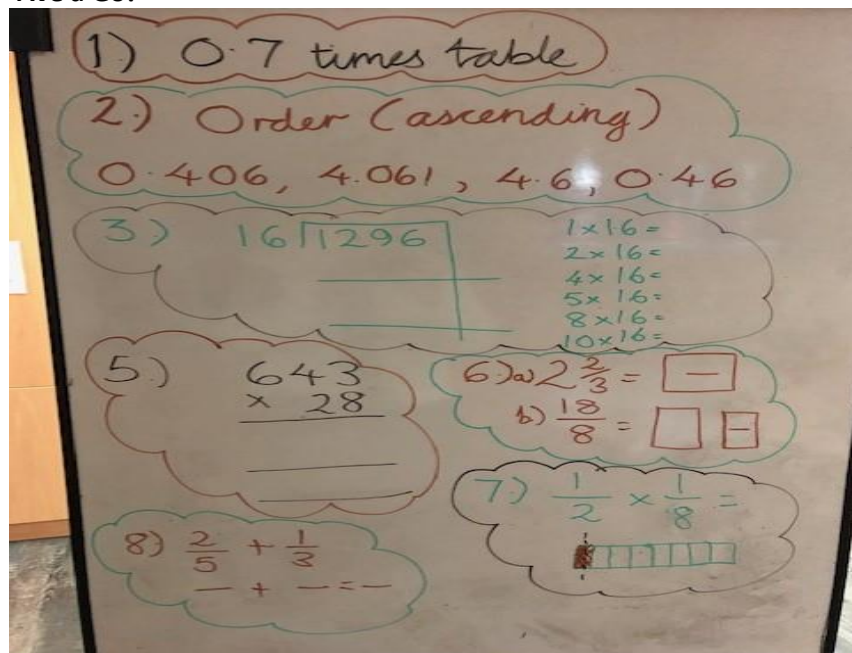 1) 0.7 times table
2.) Order (ascending)
0.406, 4.061, 4.6, 0.46
3) 16 1296
1 x 16 =
2 x 16 =
4 x 16 =
5 x 16 =
8 x 16 =
10 x 16 =
5.) 643
x 28
6.) a) 2 2/3 =
b) 18/8 =
7.) 1/2 x 1/8 =
8) 2/5 + 1/3
— + — = —